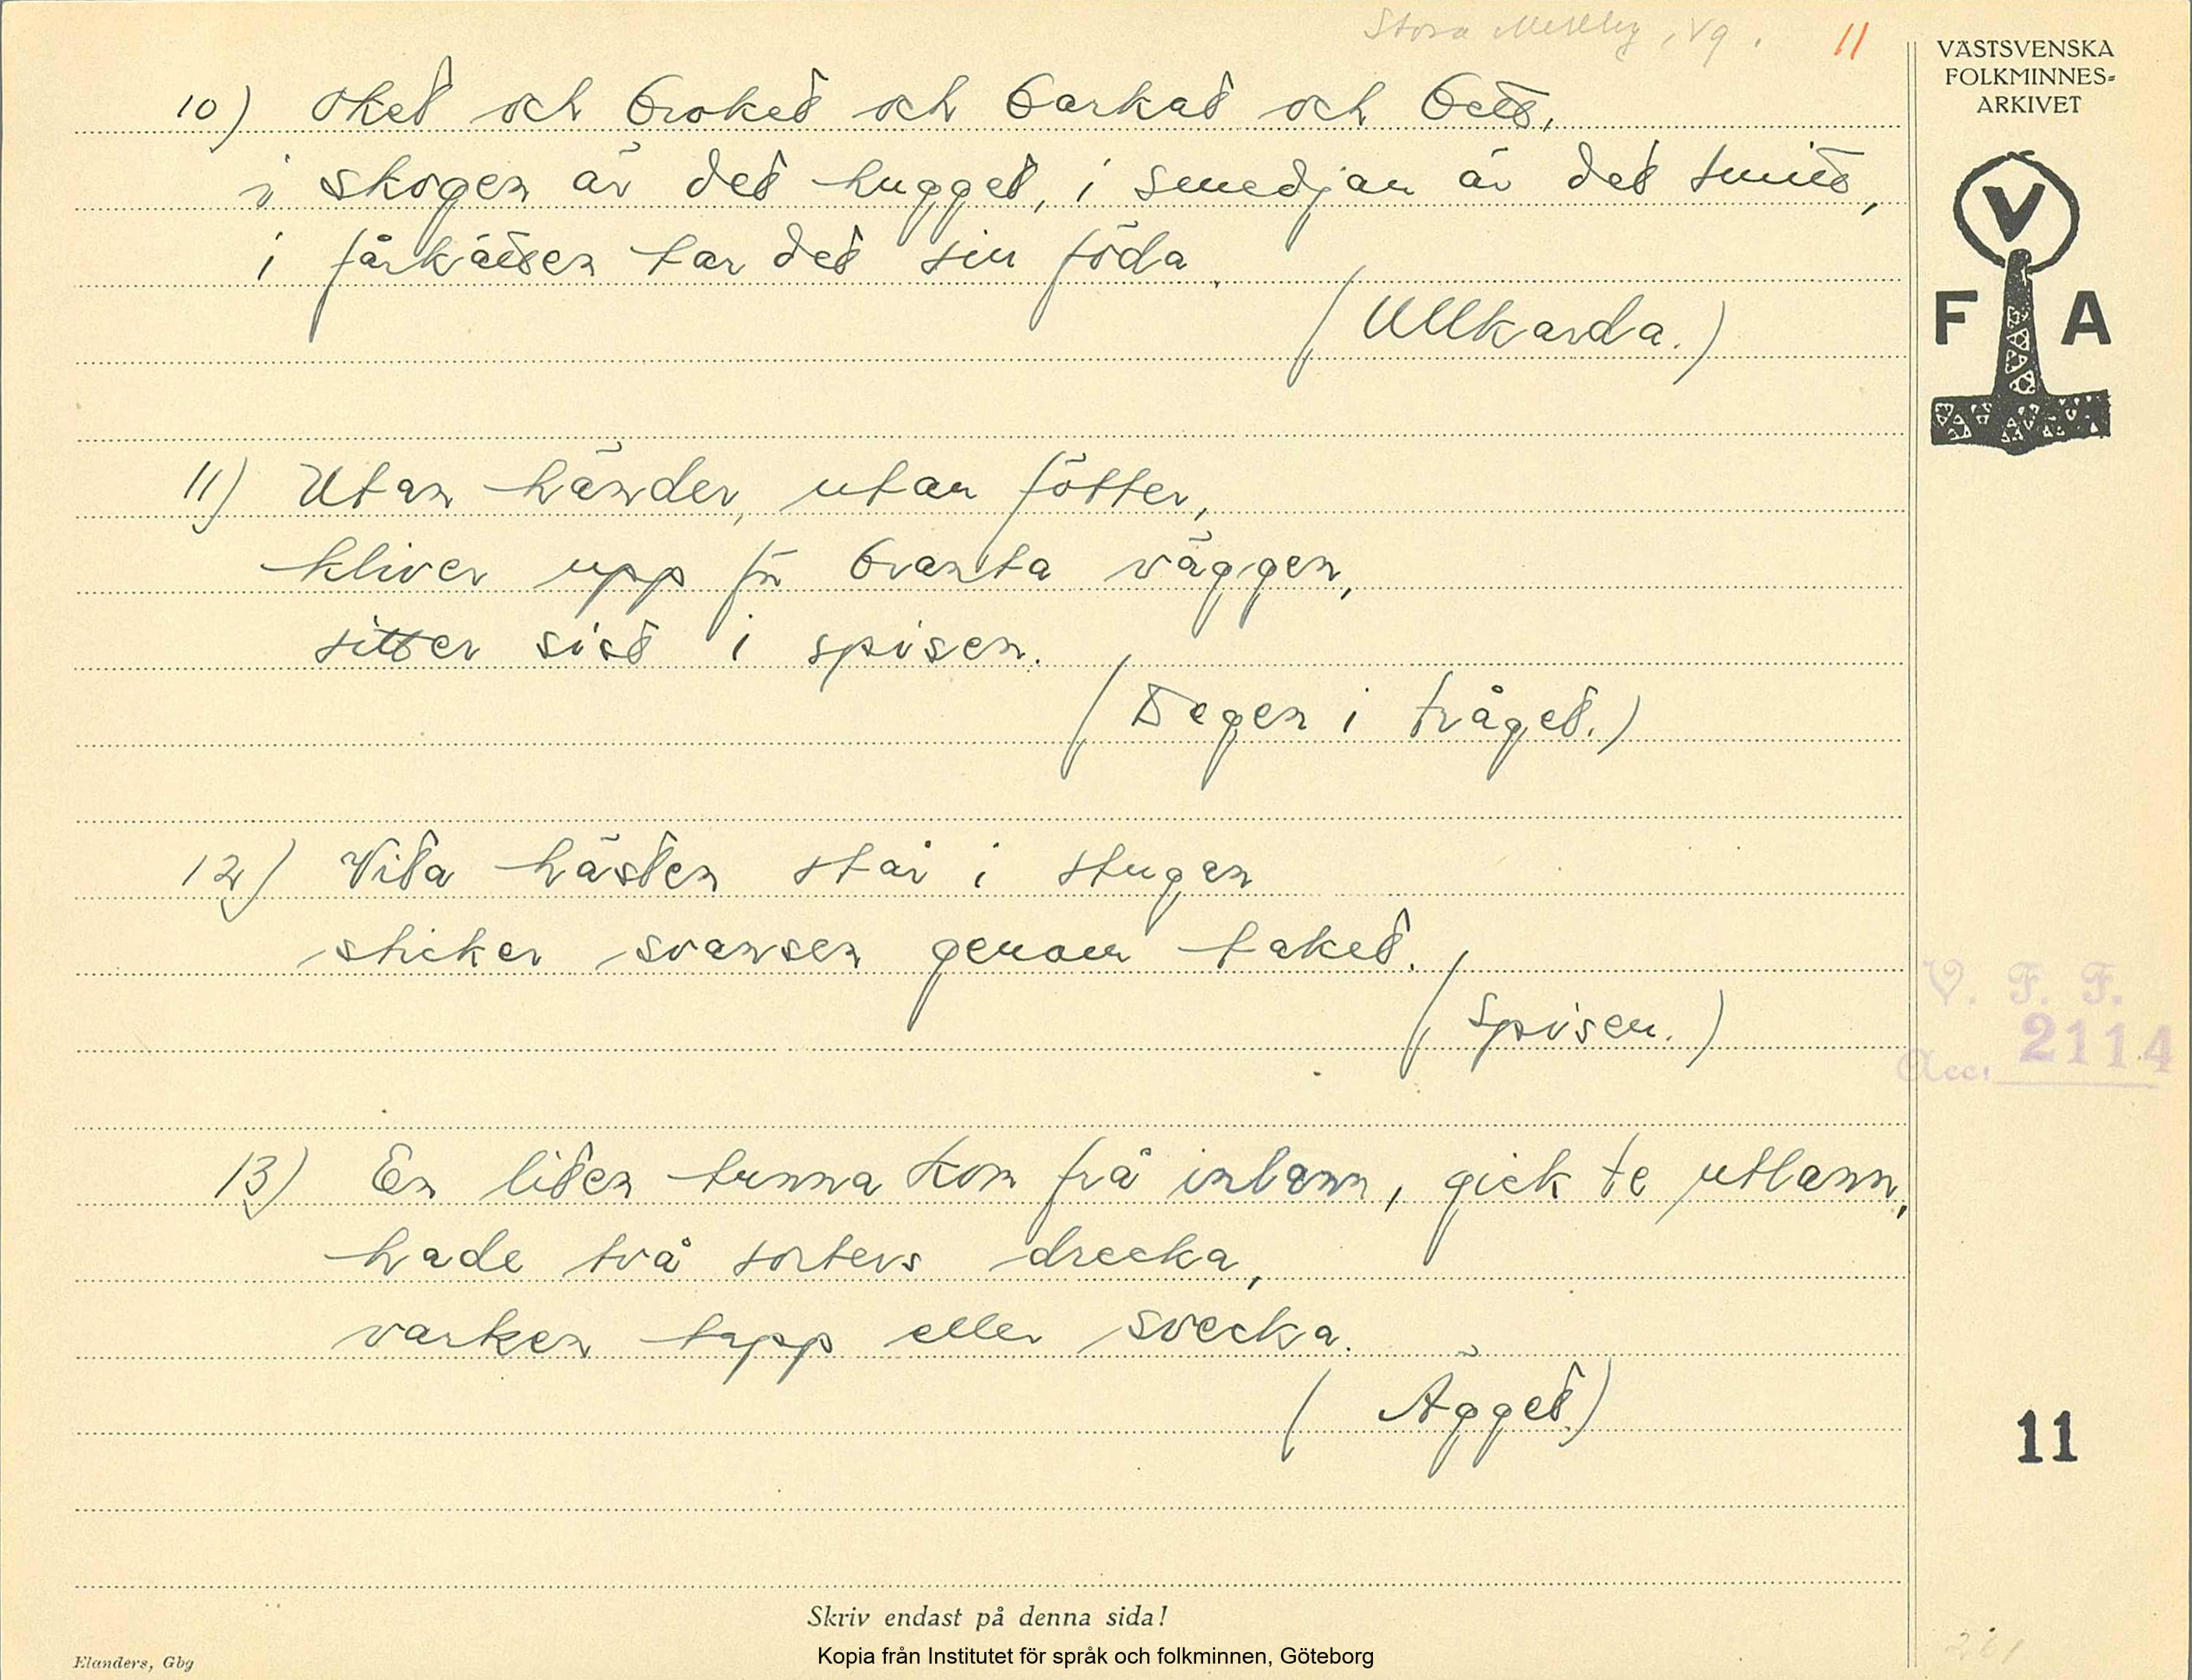 Stora Mellby, Vg.
11
VÄSTSVENSKA
FOLKMINNES-
ARKIVET
V
F A
10) Oket och broket och barkat och bett,
i skogen är det hugget, i smedjan är det smitt,
i fårkätten tar det sin föda.
(Ullkarda.)
11) Utan händer, utan fötter,
kliver upp för branta väggen,
sitter sist i spisen.
(Degen i tråget.)
12) Vita hästen står i stugan
sticker svansen genom taket.
(Spisen.)
V. F. F.
Acc. 2114
13) En liten tunna kom frå inlann, gick te utlann,
hade två sorters drecka,
varken tapp eller svecka.
(Ägget)
11
Skriv endast på denna sida!
Kopia från Institutet för språk och folkminnen, Göteborg
Elanders, Gbg